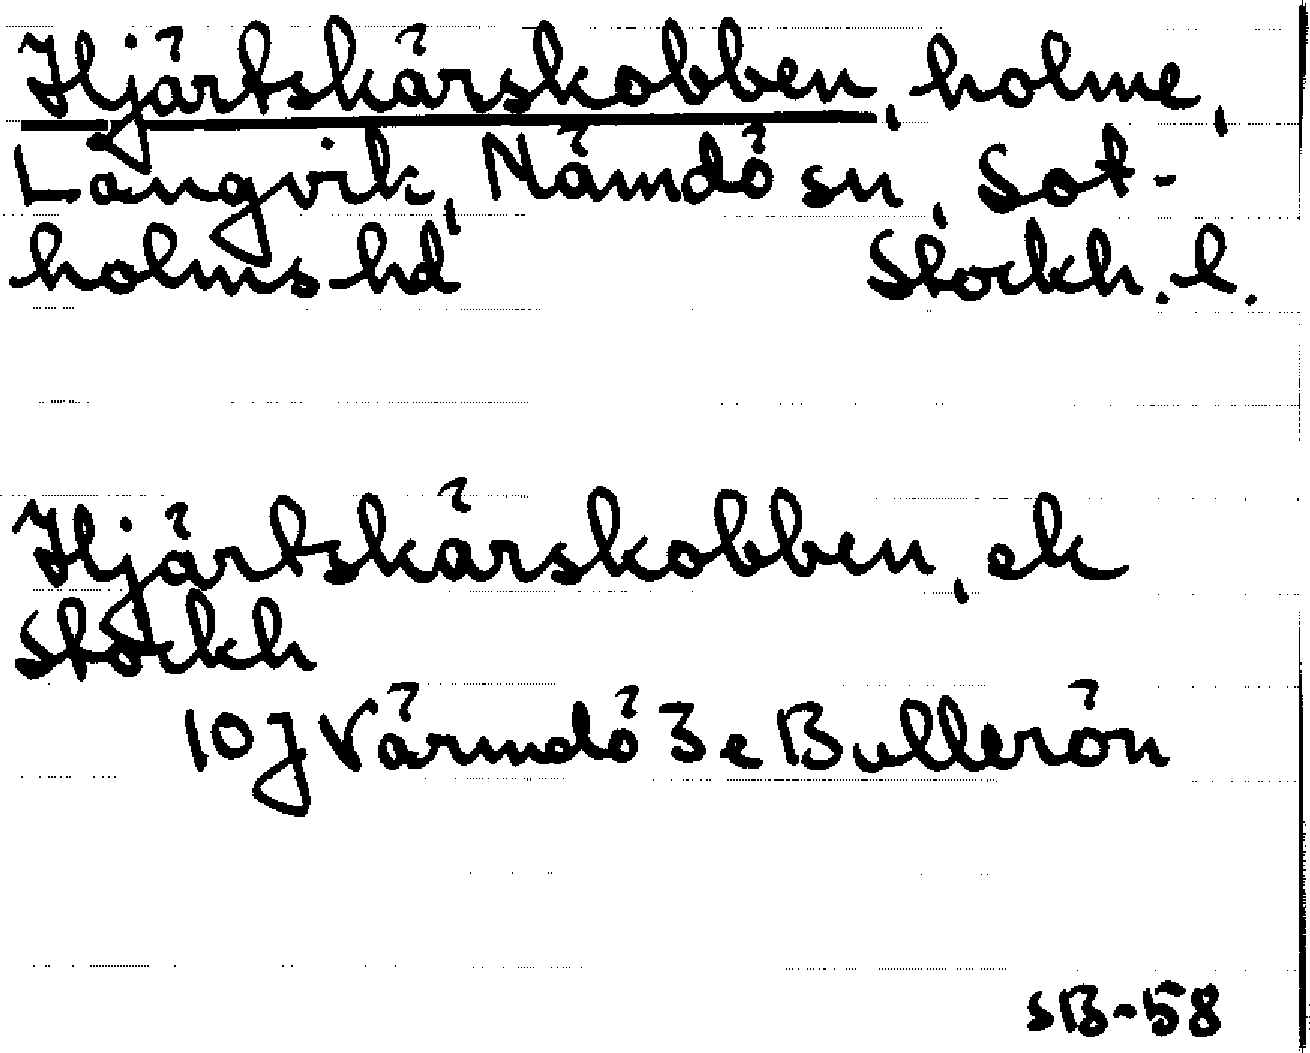 Hjärtskärskobben, holme,
Långvik, Nämdö sn, Sot-
holms hd Stockh. l.
Hjärtskärskobben, ek
Stockh
10J Värmdö 3e Bullerön
SB-58